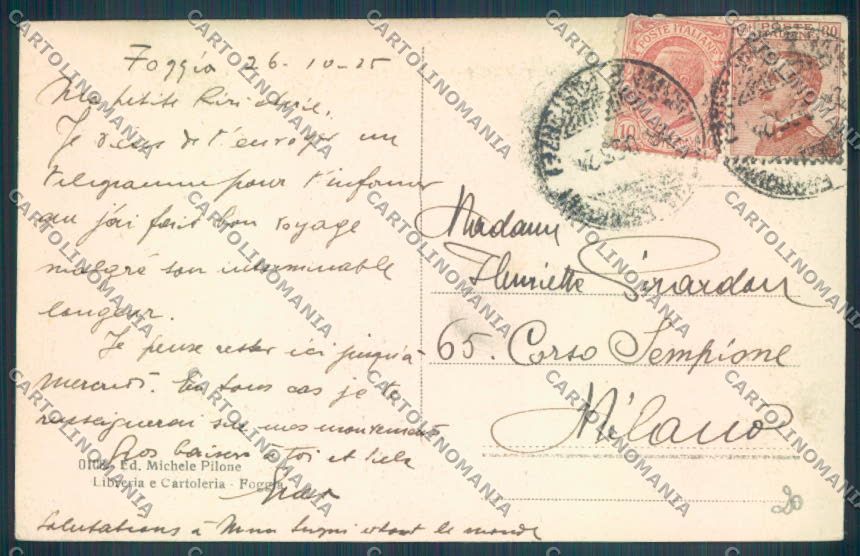 Foggia 26-10-25
Ma petite
Je viens de t'envoyer un
télegramme pour t'informer
que j'ai fait bon voyage
malgré son interminable
longueur.
Je pense rester ici jusqu'à
mercredi. En tous cas je te
renseignerai sur mes mouvements
Gros baisers à toi et
Salutations à tout le monde
0108 Ed. Michele Pilone
Libreria e Cartoleria - Foggia
POSTE ITALIANE
10
POSTE ITALIANE
60
Madame
Henriette Girardon
65. Corso Sempione
Milano
20
CARTOLINOMANIA